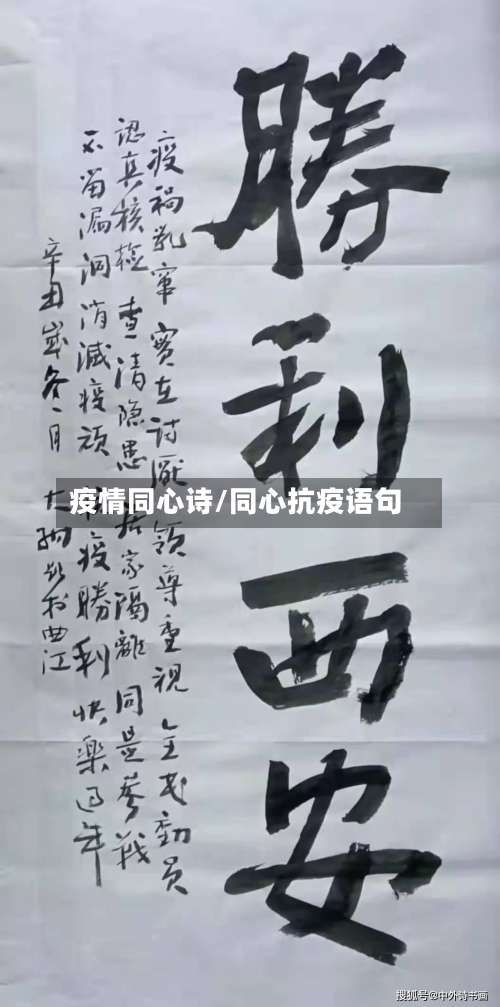 勝利西安
疫禍乱窜 實在討厭 領導重視 全民動員
認真核檢 查清隐患 居家隔離 同是參戰
不留漏洞 消滅疫頑 疫勝利 快樂过年
辛丑歲冬月 大 书曲江
疫情同心诗/同心抗疫语句
搜狐号@中外诗书画